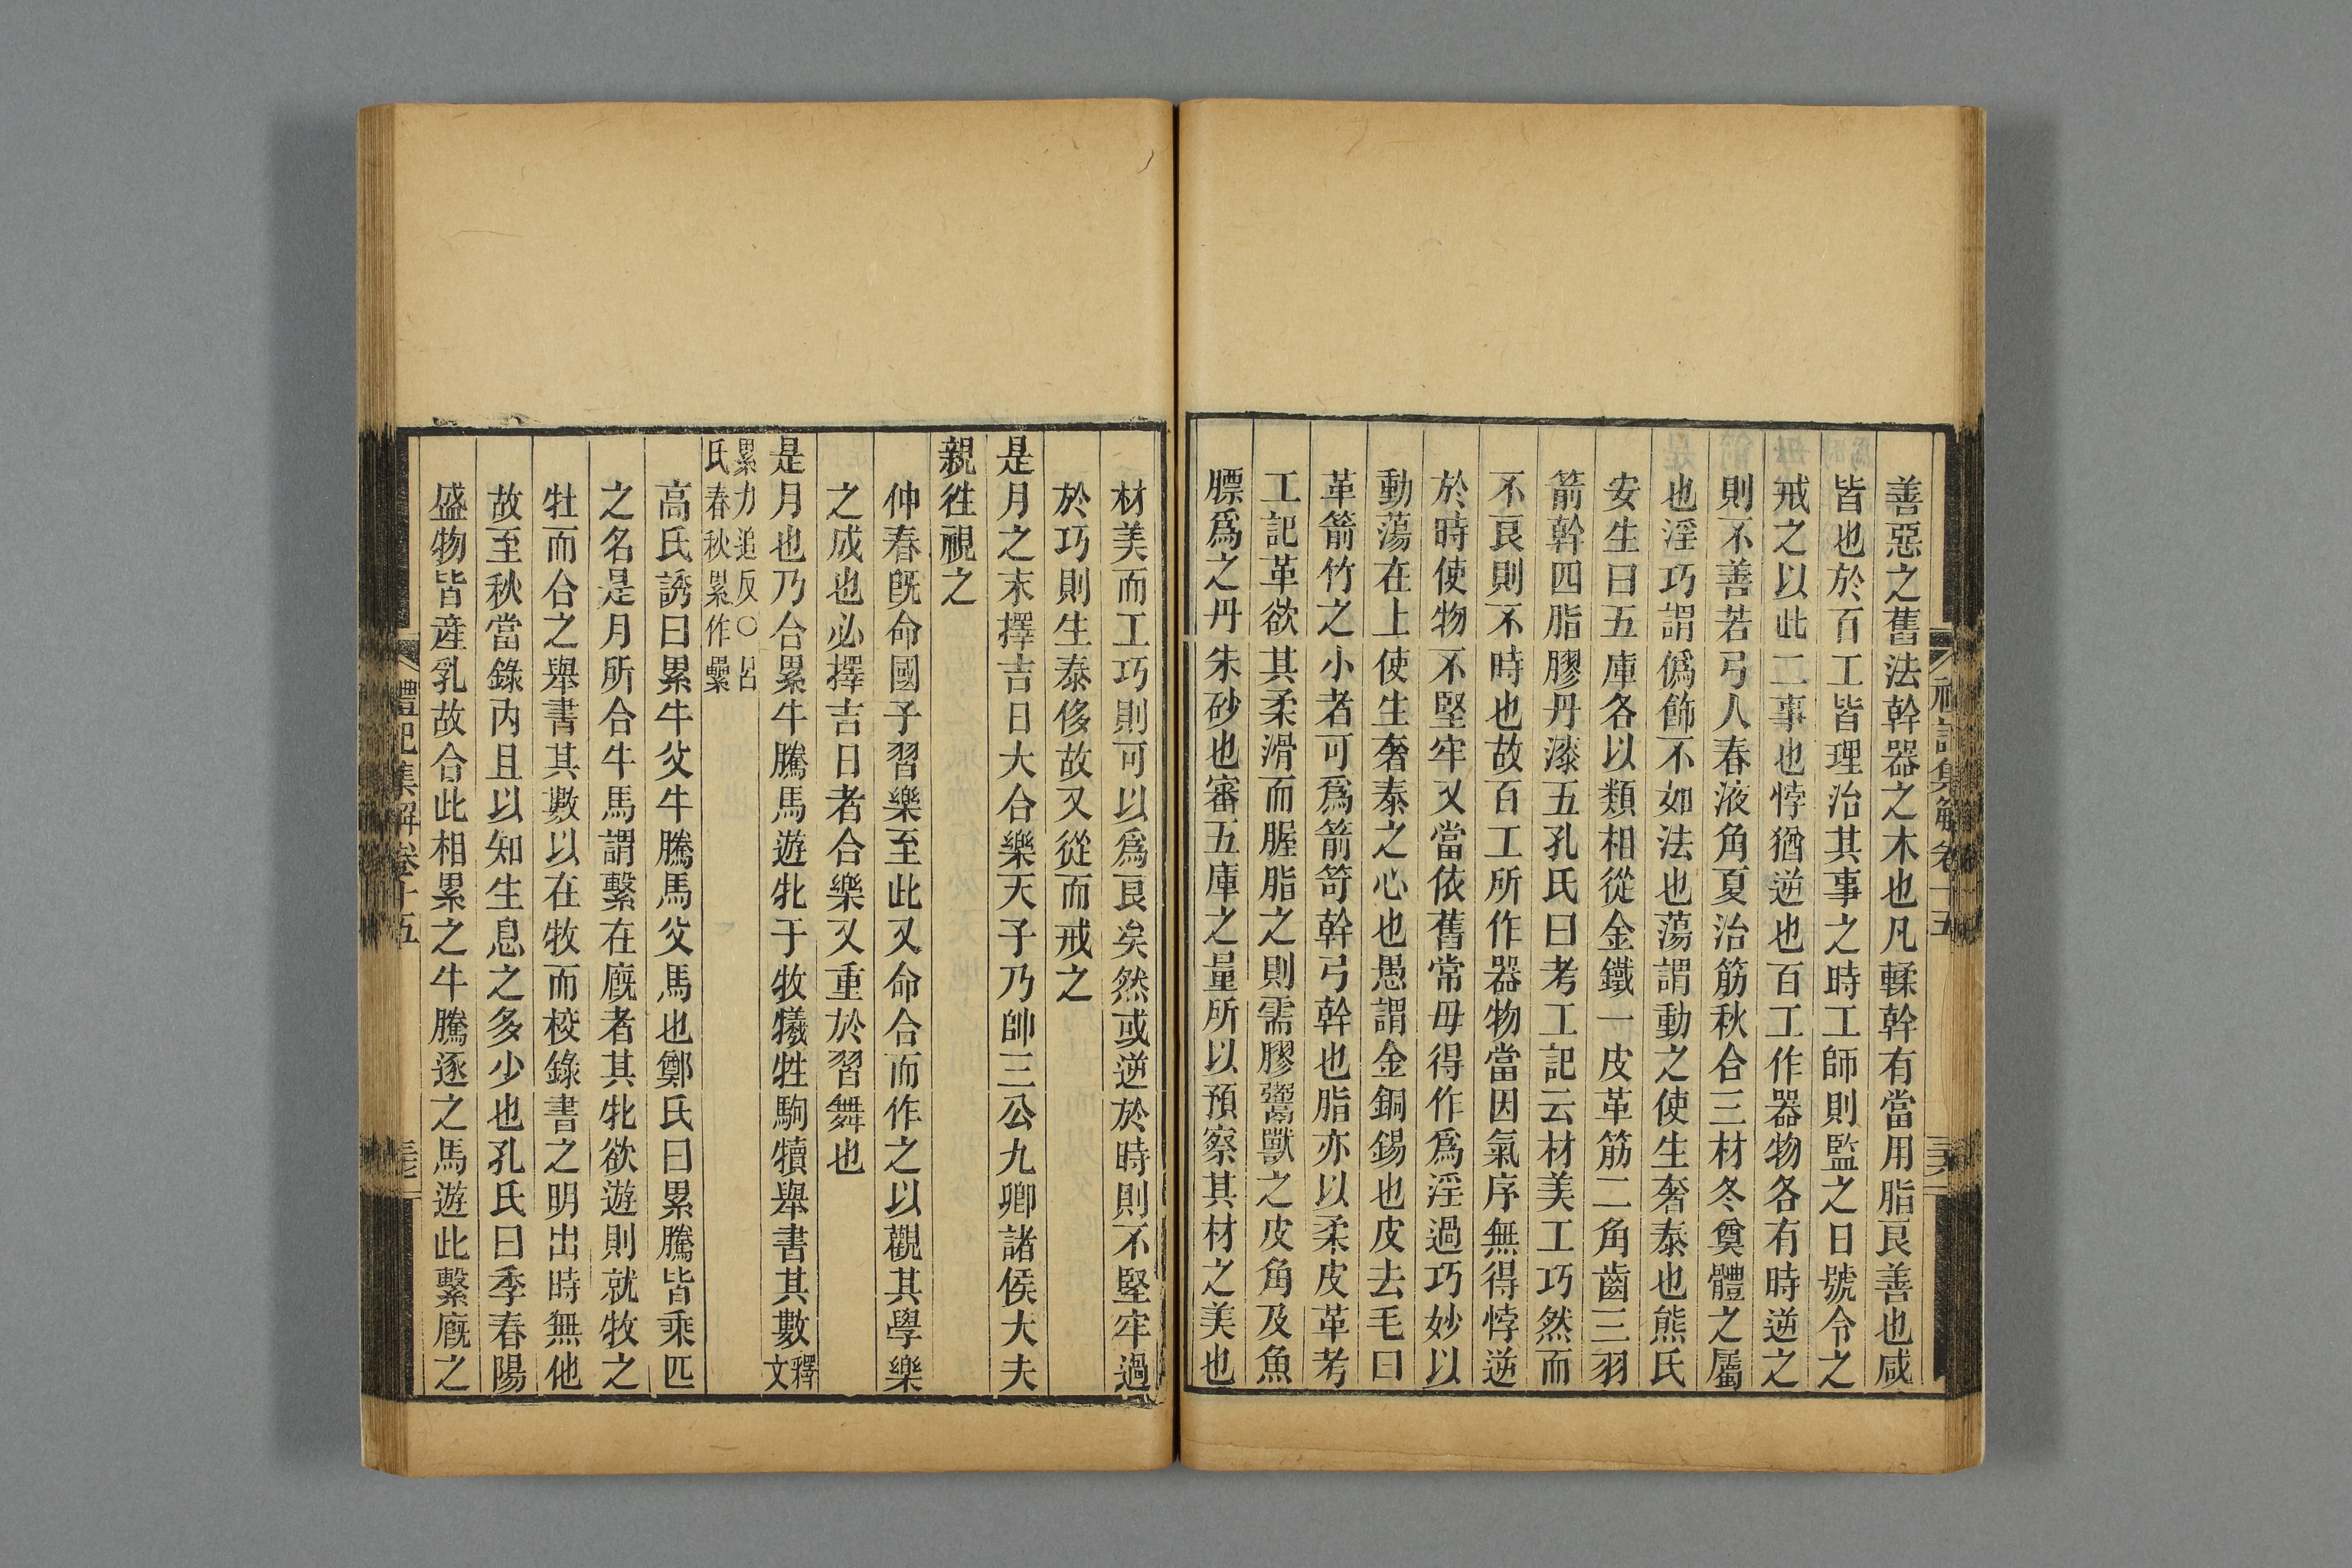 善惡之舊法幹器之木也凡輮幹有當用脂良善也咸
皆也於百工皆理治其事之時工師則監之日號令之
戒之以此二事也悖猶逆也百工作器物各有時逆之
則不善若弓人春液角夏治筋秋合三材冬奠體之屬
也淫巧謂僞飾不如法也蕩謂動之使生奢泰也熊氏
安生曰五庫各以類相從金鐵一皮革筋二角齒三羽
箭幹四脂膠丹漆五孔氏曰考工記云材美工巧然而
不良則不時也故百工所作器物當因氣序無得悖逆
於時使物不堅牢又當依舊常毋得作爲淫過巧妙以
動蕩在上使生奢泰之心也愚謂金銅錫也皮去毛曰
革箭竹之小者可爲箭笴幹弓幹也脂亦以柔皮革考
工記革欲其柔滑而腛脂之則需膠鬻獸之皮角及魚
膘爲之丹朱砂也審五庫之量所以預察其材之美也
禮記集解卷十五
材美而工巧則可以爲良矣然或逆於時則不堅牢過
於巧則生泰侈故又從而戒之
是月之末擇吉日大合樂天子乃帥三公九卿諸侯大夫
親徃視之
仲春旣命國子習樂至此又命合而作之以觀其學樂
之成也必擇吉日者合樂又重於習舞也
是月也乃合累牛騰馬遊牝于牧犧牲駒犢舉書其數釋文
累力追反○呂氏春秋累作纍
高氏誘曰累牛父牛騰馬父馬也鄭氏曰累騰皆乘匹
之名是月所合牛馬謂繫在廐者其牝欲遊則就牧之
牡而合之舉書其數以在牧而校錄書之明出時無他
故至秋當錄內且以知生息之多少也孔氏曰季春陽
盛物皆產乳故合此相累之牛騰逐之馬遊此繫廐之
禮記集解卷十五